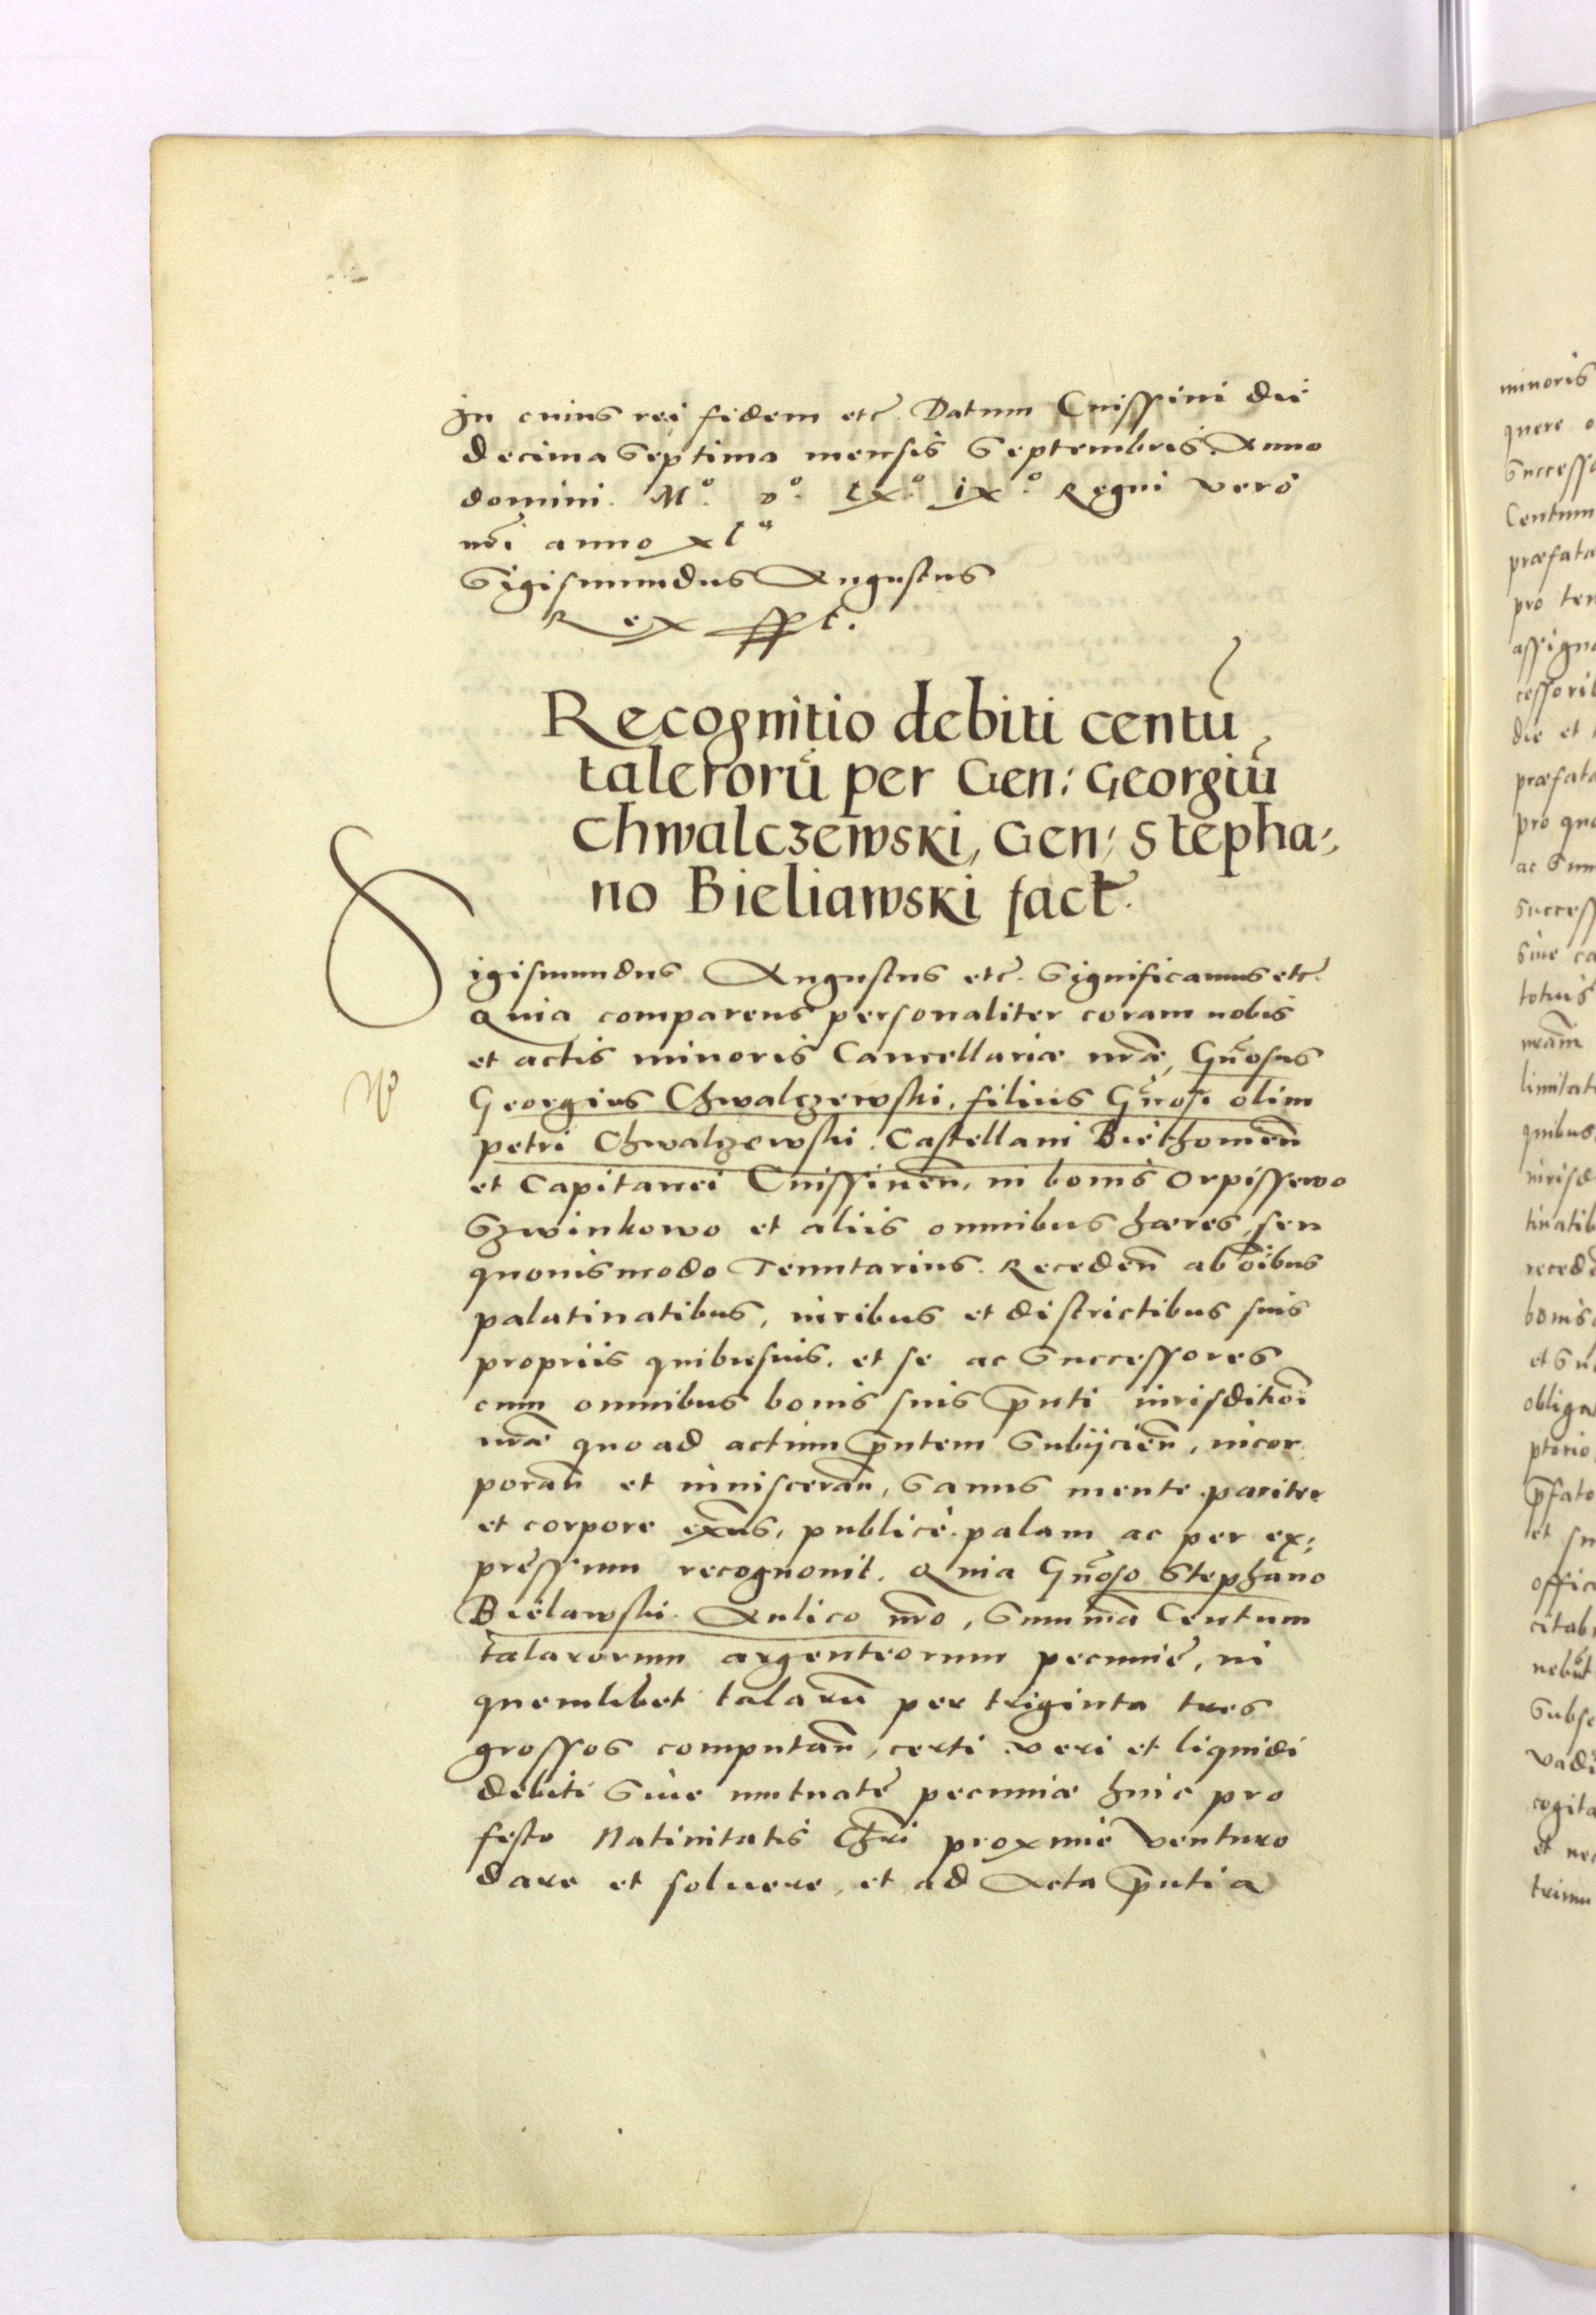 In cuius rei fidem etc̃. Datum Cnissini die
decima septima mensis Septembris. Anno
domini. Mᵒ. Dᵒ. lxᵒ. ixᵒ. Regni vero
nrĩ anno xlᵃ
Sigismundus Augustus
Rex sst.
Recognitio debiti centũ
talerorũ per Gen: Georgiũ
Chwalczewski, Gen: Stepha-
no Bieliawski fact̃.
Sigismundus Augustus etc̃. Significamus etc̃.
Quia comparens personaliter coram nobis
et actis minoris Cancellariæ nrãe, Gñosus
Georgius Chwalczewski, filius Gñosi olim
petri Chwalczewski. Castellani Biethomeñ
et Capitanei Cnissineñ, in bonis Orpissewo
Szwinkowo et aliis omnibus hæres, seu
quouismodo Tenutarius. Recedeñ ab oĩbus
palatinatibus, iuribus et districtibus suis
propriis quibusuis, et se ac Successores
cum omnibus bonis suis p̃nti iurisditioĩ
nrãe quoad actum p̃ntem subijcieñ, incor-
porañ et inuiscerañ, sanus mente pariter
et corpore exñs, publicè palam ac per ex-
pressum recognouit. Quia Gñoso Stephano
Bielawski Aulico nrõ, Summã Centum
talarorum argenteorum pecuniẽ, in
quemlibet talarũ per triginta tres
grossos computañ, certi veri et liquidi
debiti siue mutuatẽ pecuniæ huic pro
festo Natiuitatis Chrĩ proxime venturo
dare et soluere, et ad Acta p̃ntia
minoris
quere o
Successo
Centum
præfata
pro ten
assigna
cessorib
die et
præfata
pro quo
ac Sum
success
siue ca
totius
nrãm
limitat
quibus
iurisd
tinatib
recede
bonis
et su
obliga
ptorio
p̃fato
et su
offic
citab
Subse
vadi
cogita
et ne